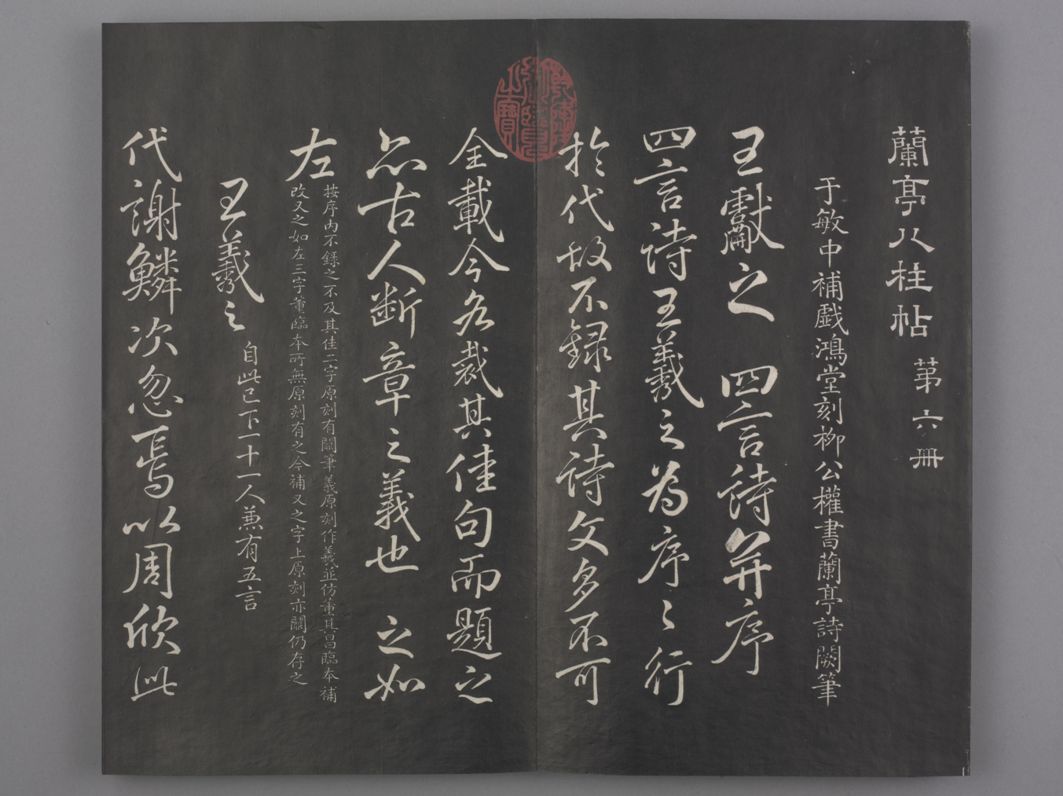 蘭亭八柱帖 第六冊
于敏中補戲鴻堂刻柳公權書蘭亭詩闕筆
王獻之 四言詩并序
四言詩王羲之為序序行
於代故不錄其詩文多不可
全載今各裁其佳句而題之
亦古人斷章之義也 之如
左
按序內不錄之不及其佳二字原刻有闕筆羲原刻作羲並仿董其昌臨本補
改又之如左三字董臨本所無原刻有之今補又之字上原刻亦闕仍存之
王羲之 自此已下一十一人兼有五言
代謝鱗次忽焉以周欣此